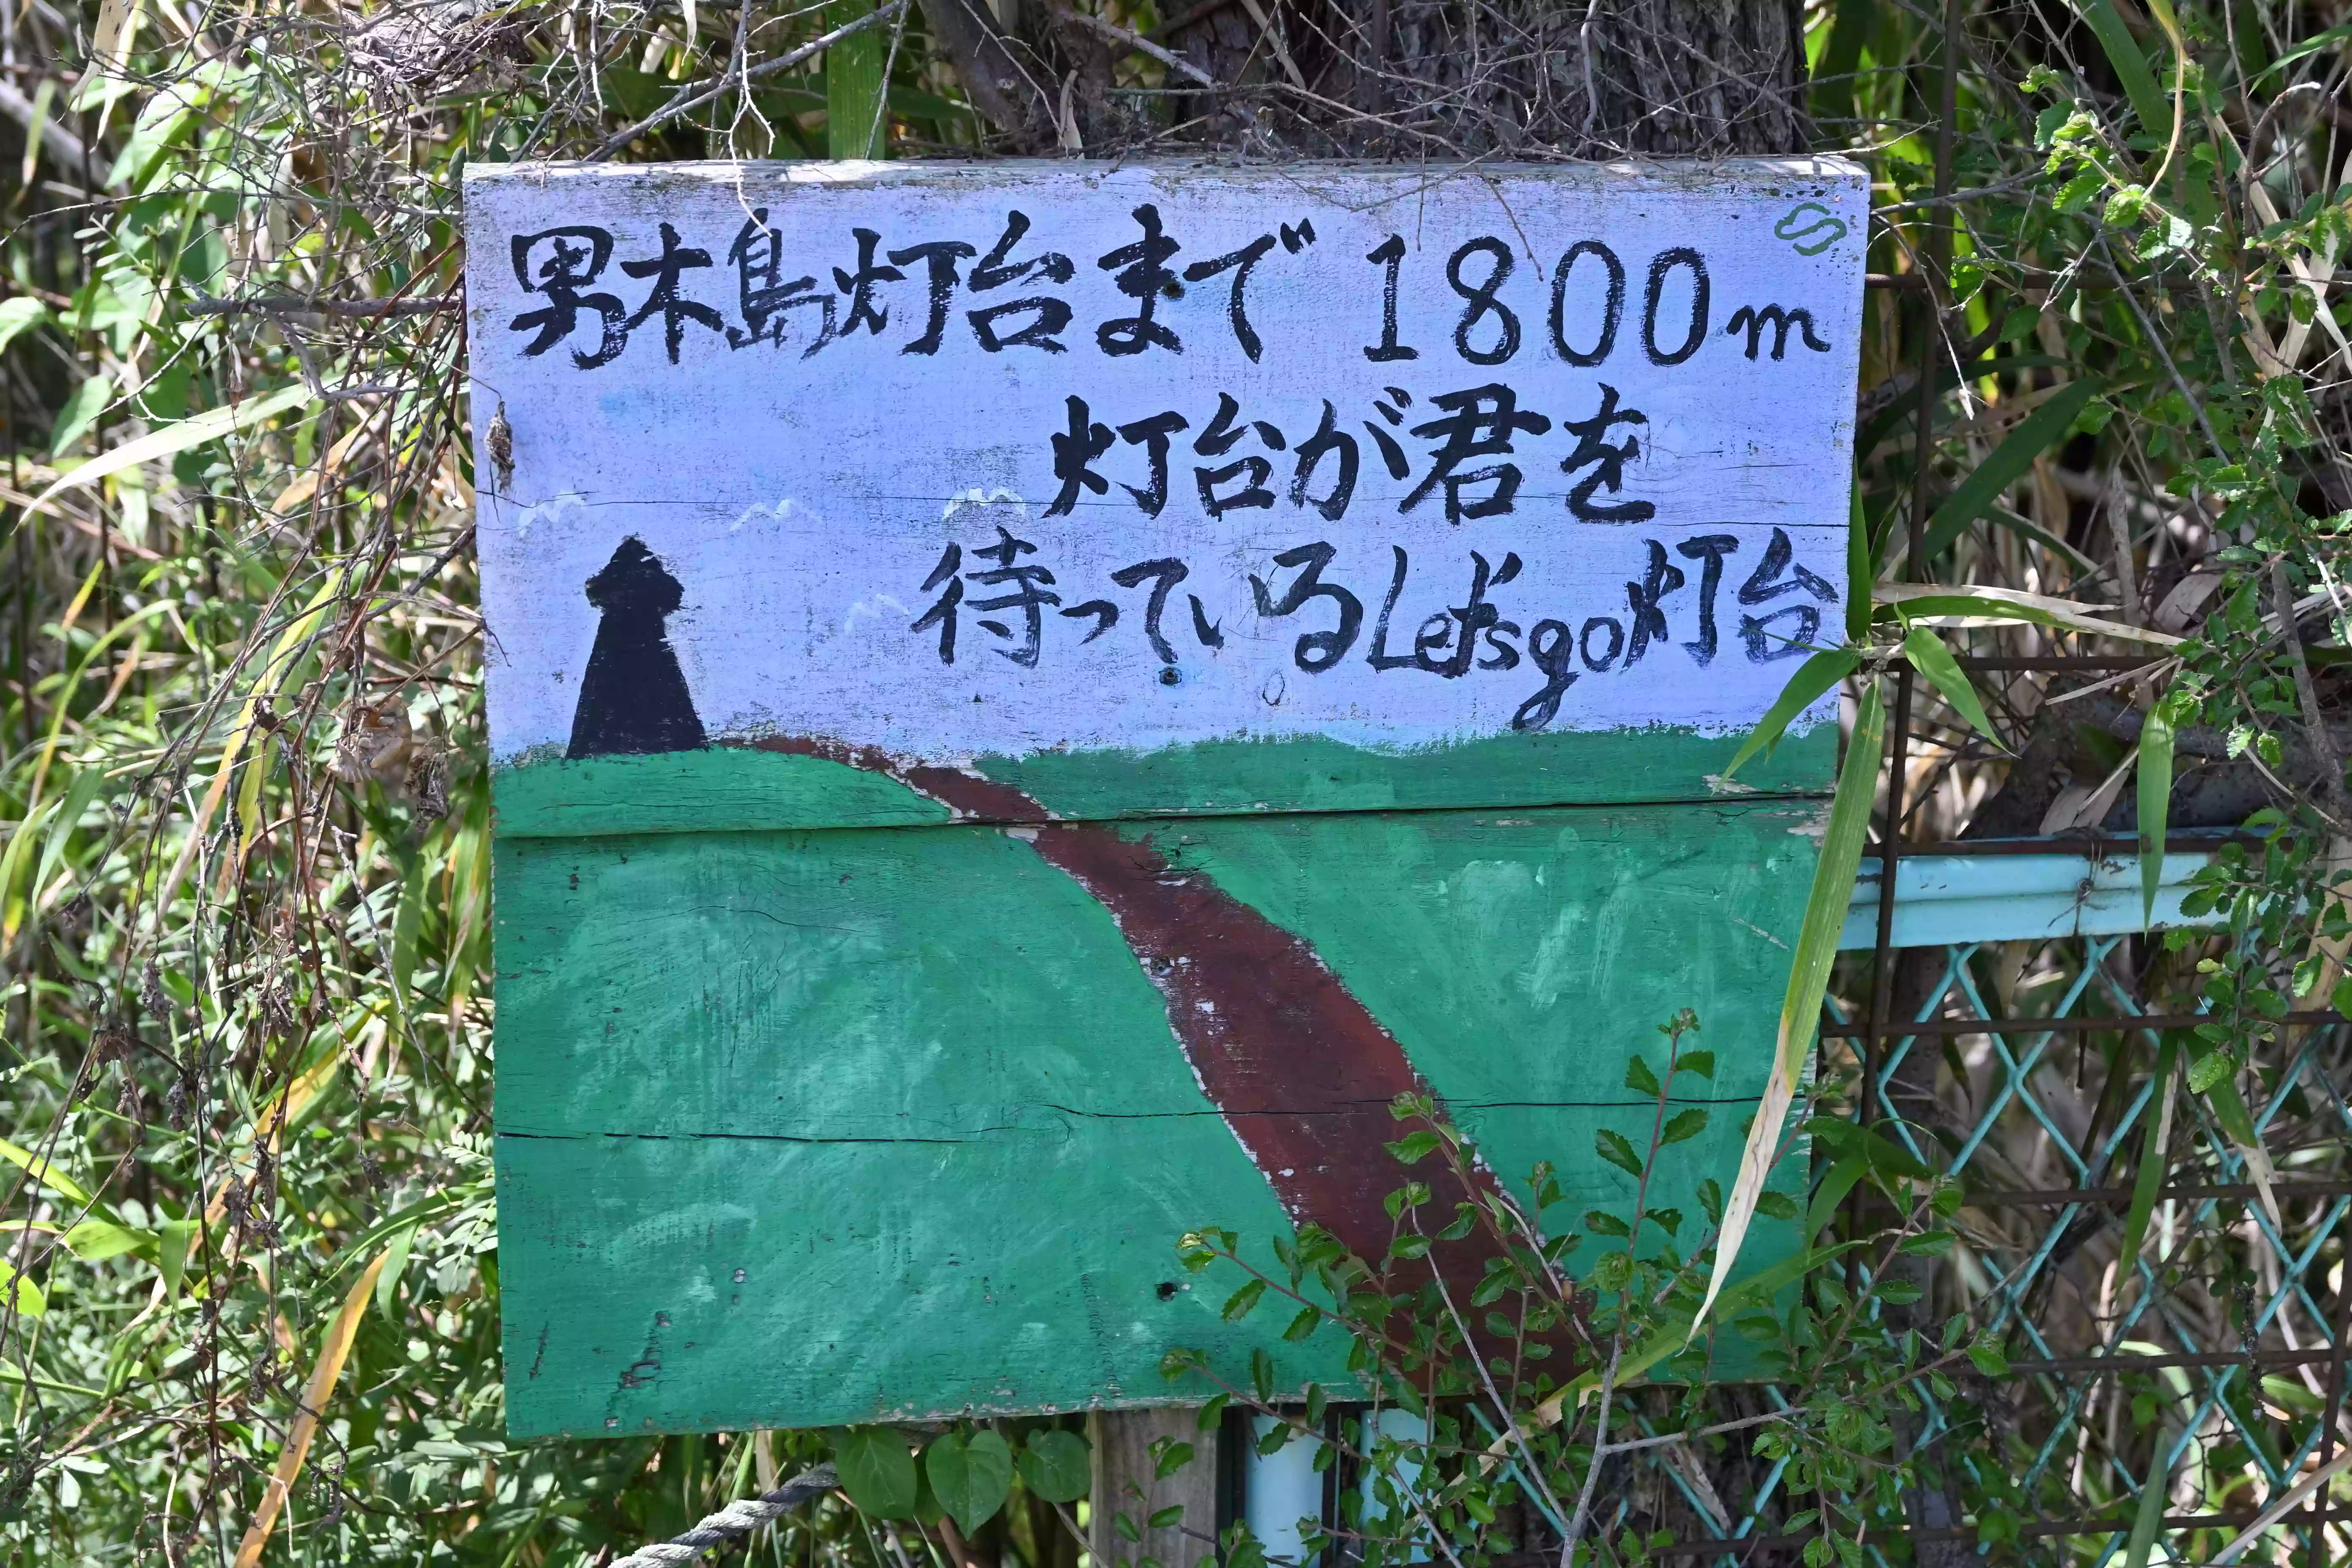 男木島灯台まで 1800m
灯台が君を
待っているLet'sgo灯台